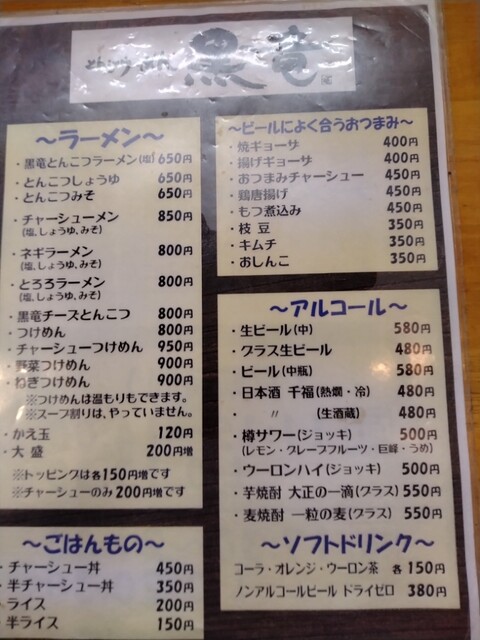 とんこつらーめん 黒竜
～ラーメン～
・黒竜とんこつラーメン(塩) 650円
・とんこつしょうゆ 650円
・とんこつみそ 650円
・チャーシューメン 850円
(塩、しょうゆ、みそ)
・ネギラーメン 800円
(塩、しょうゆ、みそ)
・とろろラーメン 800円
(塩、しょうゆ、みそ)
・黒竜チーズとんこつ 800円
・つけめん 800円
・チャーシューつけめん 950円
・野菜つけめん 900円
・ねぎつけめん 900円
※つけめんは温もりもできます。
※スープ割りは、やっていません。
・かえ玉 120円
・大 盛 200円増
※トッピングは各150円増です
※チャーシューのみ200円増です
～ごはんもの～
・チャーシュー丼 450円
・半チャーシュー丼 350円
・ライス 200円
・半ライス 150円
～ビールによく合うおつまみ～
・焼ギョーザ 400円
・揚げギョーザ 400円
・おつまみチャーシュー 450円
・鶏唐揚げ 450円
・もつ煮込み 450円
・枝 豆 350円
・キムチ 350円
・おしんこ 350円
～アルコール～
・生ビール(中) 580円
・グラス生ビール 480円
・ビール(中瓶) 580円
・日本酒 千福(熱燗・冷) 480円
・ 〃 (生酒蔵) 480円
・樽サワー(ジョッキ) 500円
(レモン・グレープフルーツ・巨峰・うめ)
・ウーロンハイ(ジョッキ) 500円
・芋焼酎 大正の一滴(グラス) 550円
・麦焼酎 一粒の麦(グラス) 550円
～ソフトドリンク～
コーラ・オレンジ・ウーロン茶 各150円
ノンアルコールビール ドライゼロ 380円